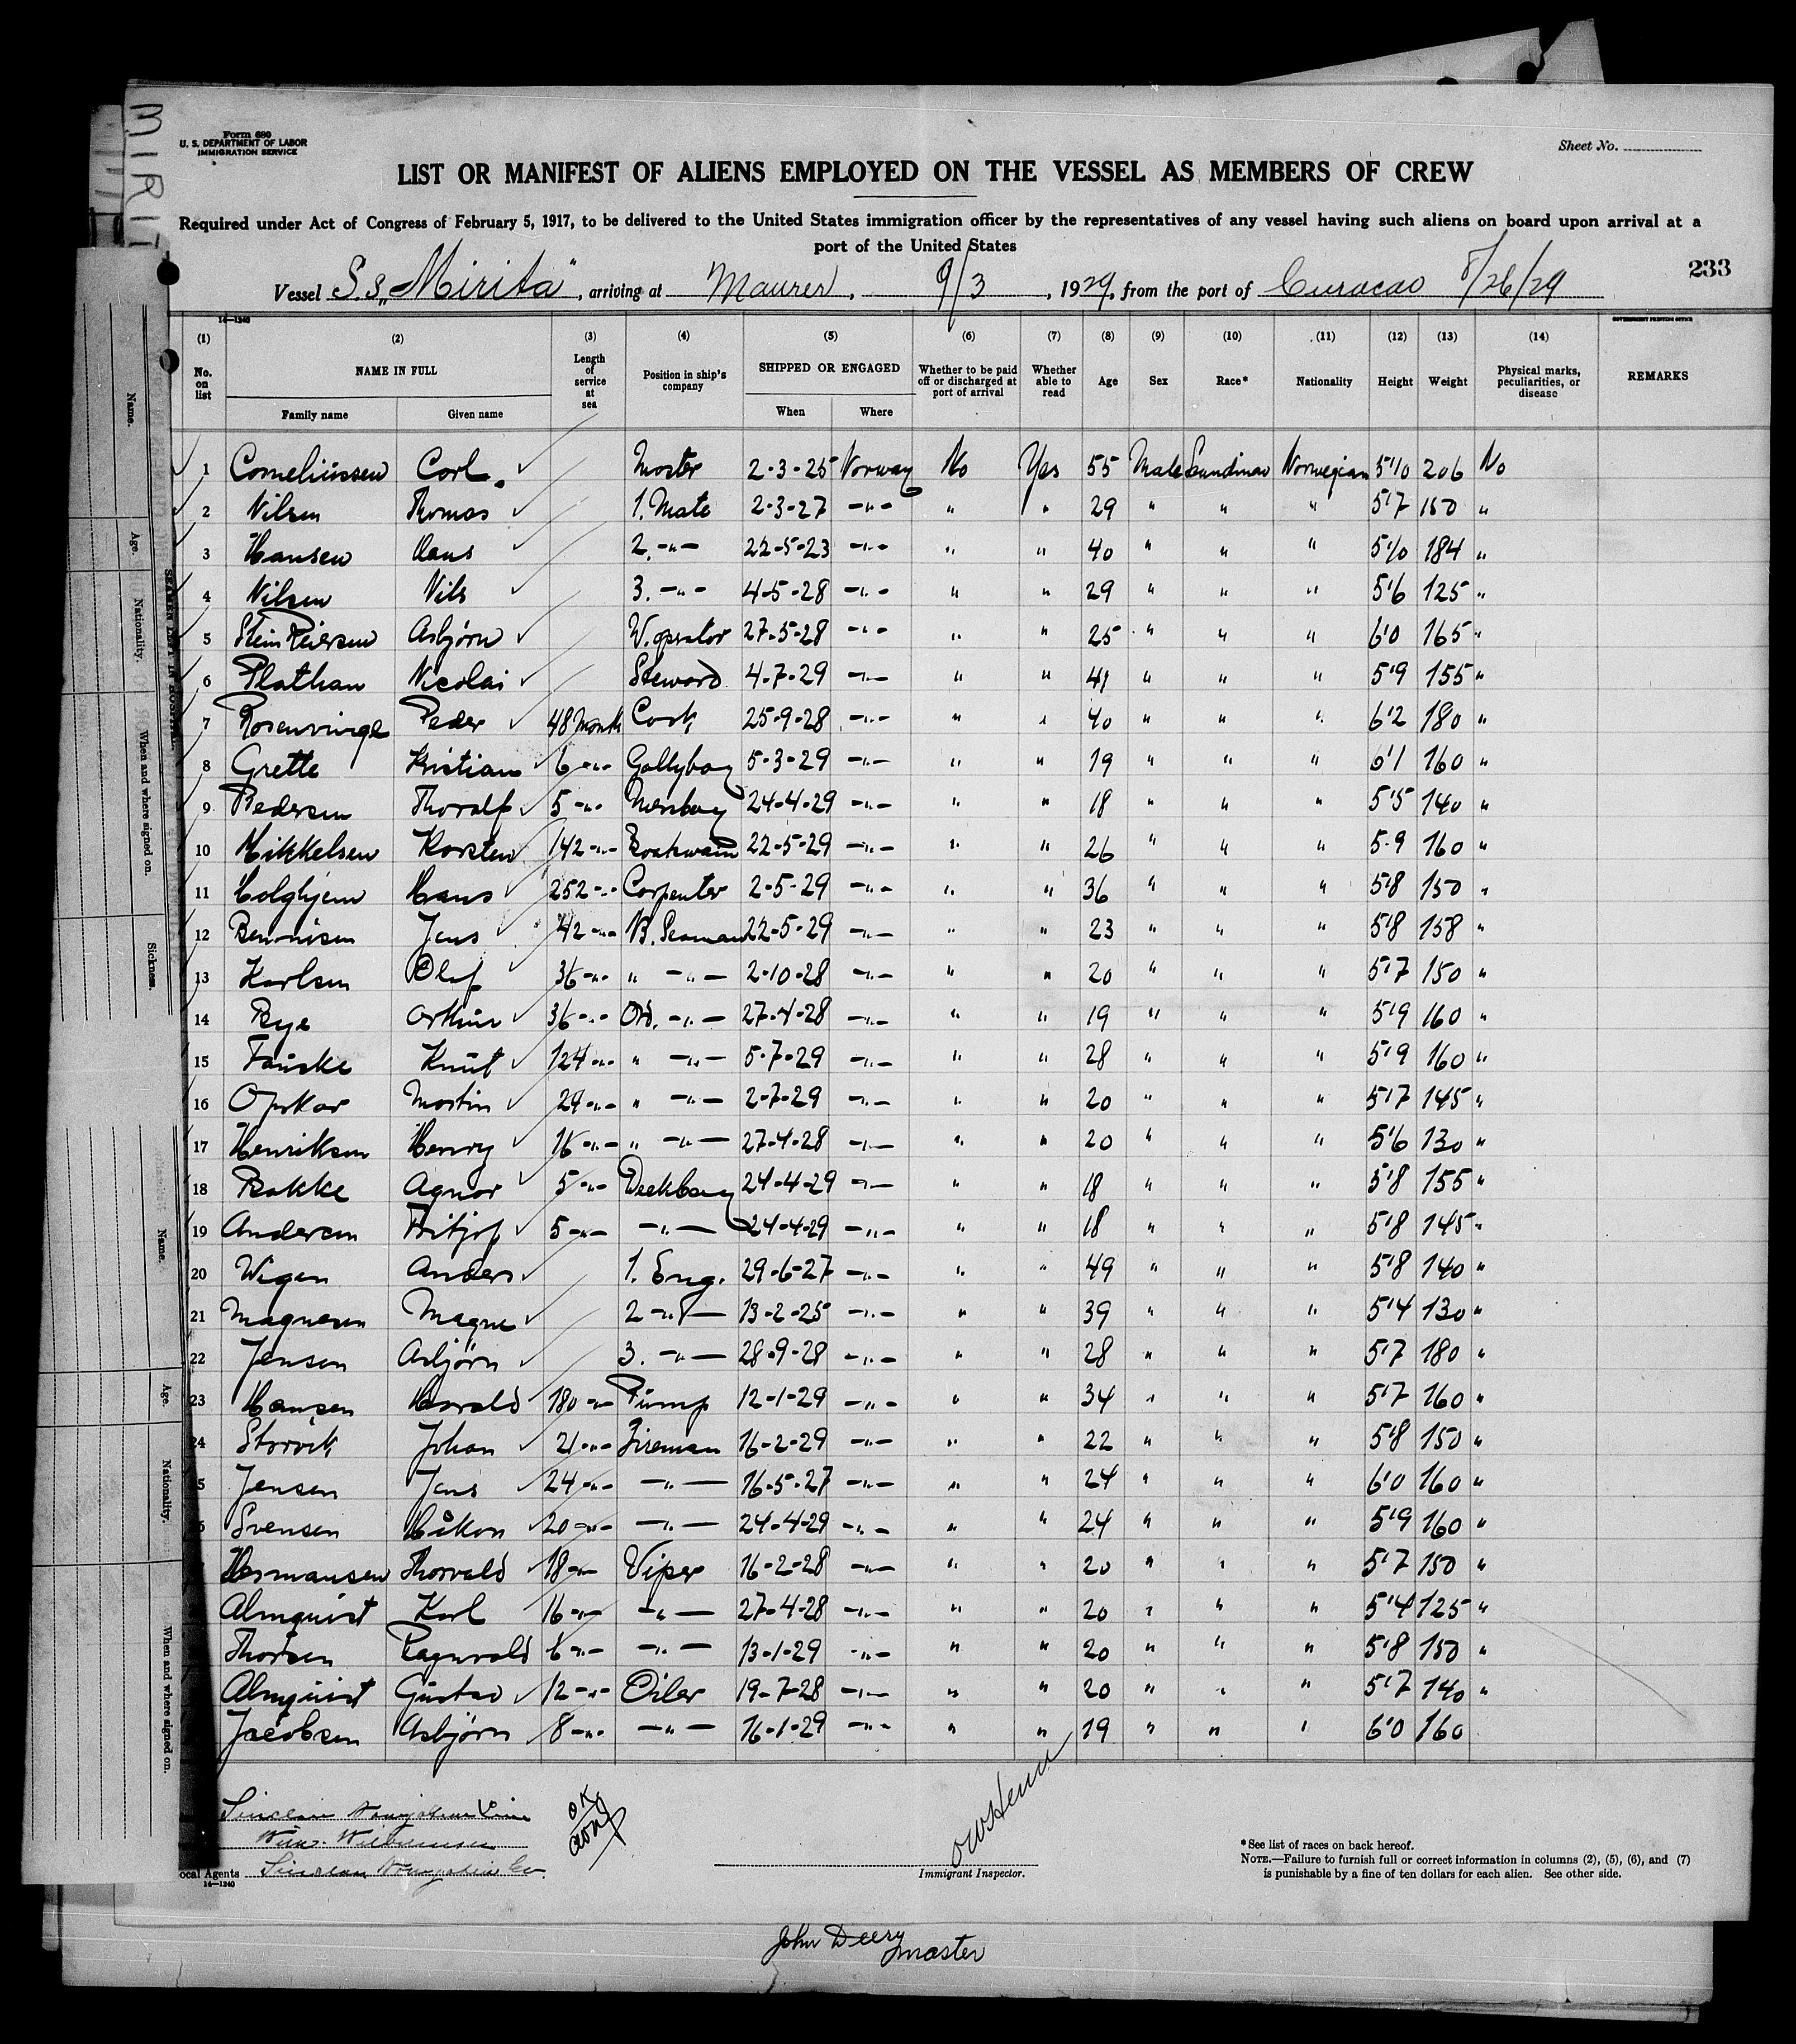 MIRIT
Form 680
U. S. DEPARTMENT OF LABOR
IMMIGRATION SERVICE
Sheet No.
LIST OR MANIFEST OF ALIENS EMPLOYED ON THE VESSEL AS MEMBERS OF CREW
Required under Act of Congress of February 5, 1917, to be delivered to the United States immigration officer by the representatives of any vessel having such aliens on board upon arrival at a
port of the United States
233
Vessel S.S. „Mirita", arriving at Maurer, 9/3, 1929, from the port of Curacao 8/26/29
14—1240
GOVERNMENT PRINTING OFFICE
(1) (2) (3) (4) (5) (6) (7) (8) (9) (10) (11) (12) (13) (14)
No. on list NAME IN FULL Length of service at sea Position in ship's company SHIPPED OR ENGAGED Whether to be paid off or discharged at port of arrival Whether able to read Age Sex Race* Nationality Height Weight Physical marks, peculiarities, or disease REMARKS
Family name Given name When Where
1 Corneliussen Carl. Master 2-3-25 Norway No Yes 55 Male Scandinav Norwegian 5'10 206 No
2 Nilsen Thomas 1. Mate 2-3-27 -"- " " 29 " " " 5'7 150 "
3 Hansen Claus 2. -"- 22-5-23 -"- " " 40 " " " 5'10 184 "
4 Nilsen Nils 3. -"- 4-5-28 -"- " " 29 " " " 5'6 125 "
5 Stein Reiersen Asbjörn W. oprator 27-5-28 -"- " " 25 " " " 6'0 165 "
6 Plathan Nicolai Steward 4-7-29 -"- " " 41 " " " 5'9 155 "
7 Rosenvinge Peder 48 Month Cook 25-9-28 -"- " " 40 " " " 6'2 180 "
8 Grette Kristian 6 -"- Gallyboy 5-3-29 -"- " " 19 " " " 6'1 160 "
9 Pedersen Thoralf 5 -"- Messboy 24-4-29 -"- " " 18 " " " 5'5 140 "
10 Mikkelsen Karsten 142 -"- Boatswain 22-5-29 -"- " " 26 " " " 5-9 160 "
11 Hans 252 -"- Carpenter 2-5-29 -"- " " 36 " " " 5'8 150 "
12 Jens 42 -"- Seaman 22-5-29 -"- " " 23 " " " 5'8 158 "
13 Karlsen Olaf 36 -"- " -"- 2-10-28 -"- " " 20 " " " 5'7 150 "
14 Bye Arthur 36 -"- Ord. -"- 27-4-28 -"- " " 19 " " " 5'9 160 "
15 Fauske Knut 124 -"- " -"- 5-7-29 -"- " " 28 " " " 5'9 160 "
16 Opskar Martin 24 -"- " -"- 2-7-29 -"- " " 20 " " " 5'7 145 "
17 Henriksen Henry 16 -"- " -"- 27-4-28 -"- " " 20 " " " 5'6 130 "
18 Bakke Agnar 5 -"- Deckboy 24-4-29 -"- " " 18 " " " 5'8 155 "
19 Andersen Fritjof 5 -"- -"- 24-4-29 -"- " " 18 " " " 5'8 145 "
20 Wigen Anders 1. Eng. 29-6-27 -"- " " 49 " " " 5'8 140 "
21 Magnesen Magne 2 -"- 13-2-25 -"- " " 39 " " " 5'4 130 "
22 Jensen Asbjörn 3. -"- 28-9-28 -"- " " 28 " " " 5'7 180 "
23 Hansen Harald 180 -"- Pump 12-1-29 -"- " " 34 " " " 5'7 160 "
24 Storvik Johan 21 -"- Fireman 16-2-29 -"- " " 22 " " " 5'8 150 "
5 Jensen Jens 24 -"- -"- 16-5-27 -"- " " 24 " " " 6'0 160 "
6 Svensen Håkon 20 -"- -"- 24-4-29 -"- " " 24 " " " 5'9 160 "
Hermansen Thorvald 18 -"- Viper 16-2-28 -"- " " 20 " " " 5'7 150 "
Almquist Karl 16 -"- -"- 27-4-28 -"- " " 20 " " " 5'4 125 "
Thorsen Ragnvald 6 -"- -"- 13-1-29 -"- " " 20 " " " 5'8 150 "
Almquist Gustav 12 -"- Oiler 19-7-28 -"- " " 20 " " " 5'7 140 "
Jacobsen Asbjörn 8 -"- -"- 16-1-29 -"- " " 19 " " " 6'0 160
Sinclair Navigation Line
OK
ocal Agents Sinclair Navigation Co.
14—1240
Immigrant Inspector.
*See list of races on back hereof.
NOTE.—Failure to furnish full or correct information in columns (2), (5), (6), and (7)
is punishable by a fine of ten dollars for each alien. See other side.
John Deery
master
Name.
Age.
Nationality.
When and where signed on.
Sickness.
Name.
Age.
Nationality.
When and where signed on.